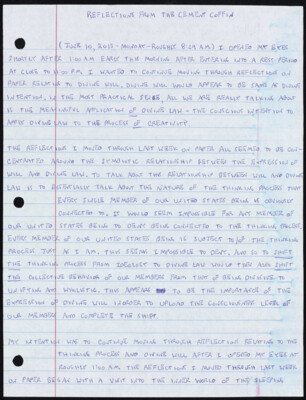 REFLECTIONS FROM THE CEMENT COFFIN
(JUNE 10, 2023 - MONDAY - ROUGHLY 8:29 A.M.) I OPENED MY EYES
SHORTLY AFTER 1:00 A.M. EARLY THIS MORNING AFTER ENTERING INTO A REST PERIOD
AT CLOSE TO P.M. I WANTED TO CONTINUE MOVING THROUGH REFLECTIONS ON
PAPER RELATING TO DIVINE WILL, DIVINE WILL WOULD APPEAR TO BE
INTENTION, IN THE MOST PRACTICAL ALL WE ARE REALLY TALKING ABOUT
IS THE MEANINGFUL APPLICATION OF DIVINE LAW - THE CONSCIOUS INTENTION TO
APPLY DIVINE LAW TO THE PROCESS OF CREATIVITY.
THE REFLECTION I MOVED THROUGH LAST WEEK ON PAPER ALL SEEMED TO BE CON-
CENTRATED AROUND THE SYMBIOTIC RELATIONSHIP BETWEEN THE EXPRESSION OF
WILL AND DIVINE LAW. TO TALK ABOUT THE RELATIONSHIP BETWEEN WILL AND DIVINE
LAW IS TO ESSENTIALLY TALK ABOUT THE NATURE OF THE THINKING PROCESS THAT
EVERY SINGLE MEMBER OF OUR UNITED STATES BEING IS OBVIOUSLY
CONNECTED TO. IT WOULD SEEM IMPOSSIBLE FOR ANY MEMBER OF
OUR UNITED STATES BEING TO DENY BEING CONNECTED TO THE THINKING PROCESS.
EVERY MEMBER OF OUR UNITED STATES BEING IS SUBJECT TO THE THINKING
PROCESS JUST AS I AM, THIS SEEMS IMPOSSIBLE TO DENY, AND SO TO SHIFT
THE THINKING PROCESS FROM TO DIVINE LAW WOULD THEN ALSO SHIFT
THE COLLECTIVE BEHAVIOR OF OUR MEMBERS FROM THAT OF BEING DIVISIVE TO
UNIFYING AND WHOLISTIC, THIS APPEARS TO BE THE IMPORTANCE OF THE
EXPRESSION OF DIVINE WILL IN ORDER TO UPLOAD THE CONSCIOUSNESS LEVEL OF
OUR MEMBERS AND COMPLETE THE SHIFT.
MY INTENTION WAS TO CONTINUE MOVING THROUGH REFLECTION RELATING TO THE
THINKING PROCESS AND DIVINE WILL AFTER I OPENED MY EYES AT
ROUGHLY 1:00 A.M. THE REFLECTION I MOVED THROUGH LAST WEEK
ON PAPER BEGAN WITH A VISIT INTO THE INNER WORLD OF THIS SLEEPING